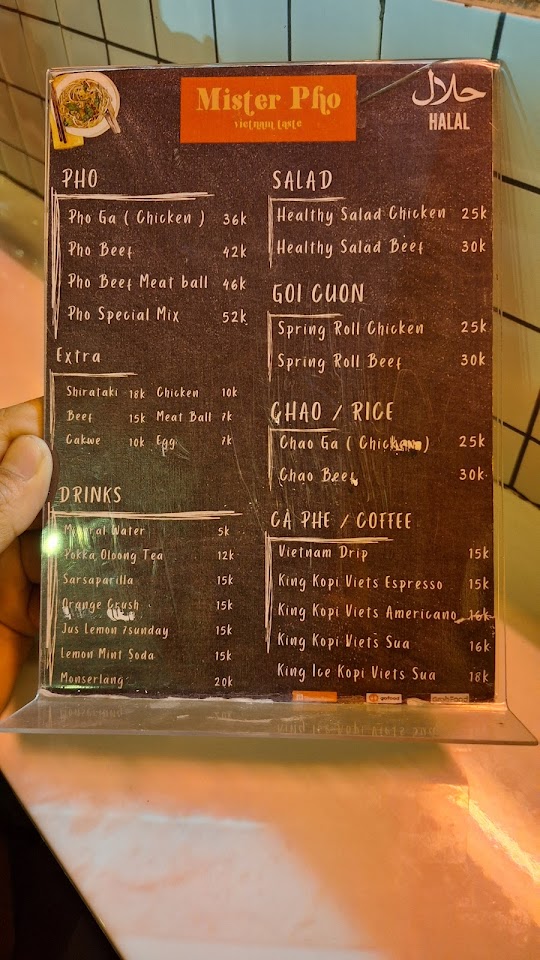 Mister Pho
vietnam taste
حلال
HALAL
PHO
Pho Ga ( Chicken ) 36k
Pho Beef 42k
Pho Beef Meat ball 46k
Pho Special Mix 52k
Extra
Shirataki 18k Chicken 10k
Beef 15k Meat Ball 7k
Cakwe 10k Egg 7k
DRINKS
Mineral Water 5k
Pokka Oloong Tea 12k
Sarsaparilla 15k
Orange Crush 15k
Jus Lemon 7sunday 15k
Lemon Mint Soda 15k
Monserlang 20k
SALAD
Healthy Salad Chicken 25k
Healthy Salad Beef 30k
GOI CUON
Spring Roll Chicken 25k
Spring Roll Beef 30k
CHAO / RICE
Chao Ga ( Chicken ) 25k
Chao Beef 30k
CÀ PHE / COFFEE
Vietnam Drip 15k
King Kopi Viets Espresso 15k
King Kopi Viets Americano 16k
King Kopi Viets Sua 16k
King Ice Kopi Viets Sua 18k
gofood
GrabFood